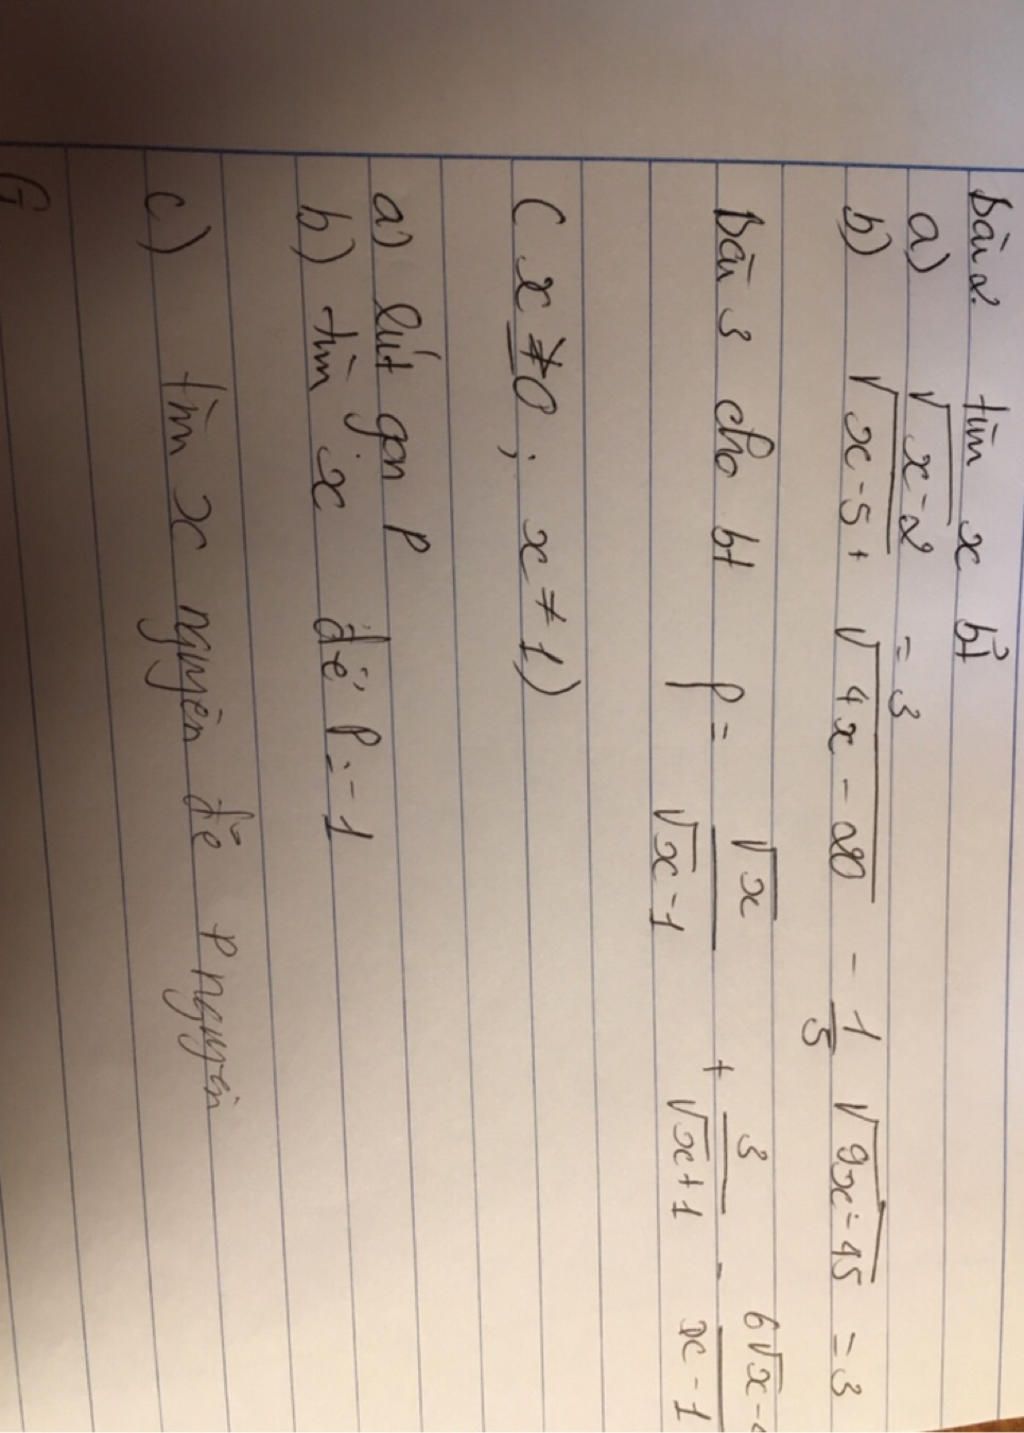 bài 2. tìm x bt
a) √(x-2) = 3
b) √(x-5) + √(4x-20) - 1/5 √(9x-45) = 3
bài 3 cho bt P = √x/(√x-1) + 3/(√x+1) - (6√x-)/(x-1)
(x ≠ 0; x ≠ 1)
a) rút gọn P
b) tìm x để P = -1
c) tìm x nguyên để P nguyên